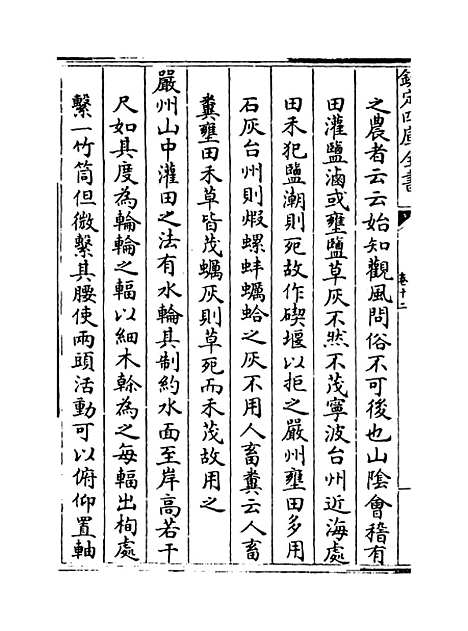 欽定四庫全書
卷十二
之農者云云始知觀風問俗不可後也山陰會稽有
田灌鹽滷或壅鹽草灰不然不茂寧波台州近海處
田禾犯鹽潮則死故作碶堰以拒之嚴州壅田多用
石灰台州則煆螺蚌蠣蛤之灰不用人畜糞云人畜
糞壅田禾草皆茂蠣灰則草死而禾茂故用之
嚴州山中灌田之法有水輪其制約水面至岸高若干
尺如其度為輪輪之輻以細木榦為之每輻出栒處
繫一竹筒但微繫其腰使兩頭活動可以俯仰置軸